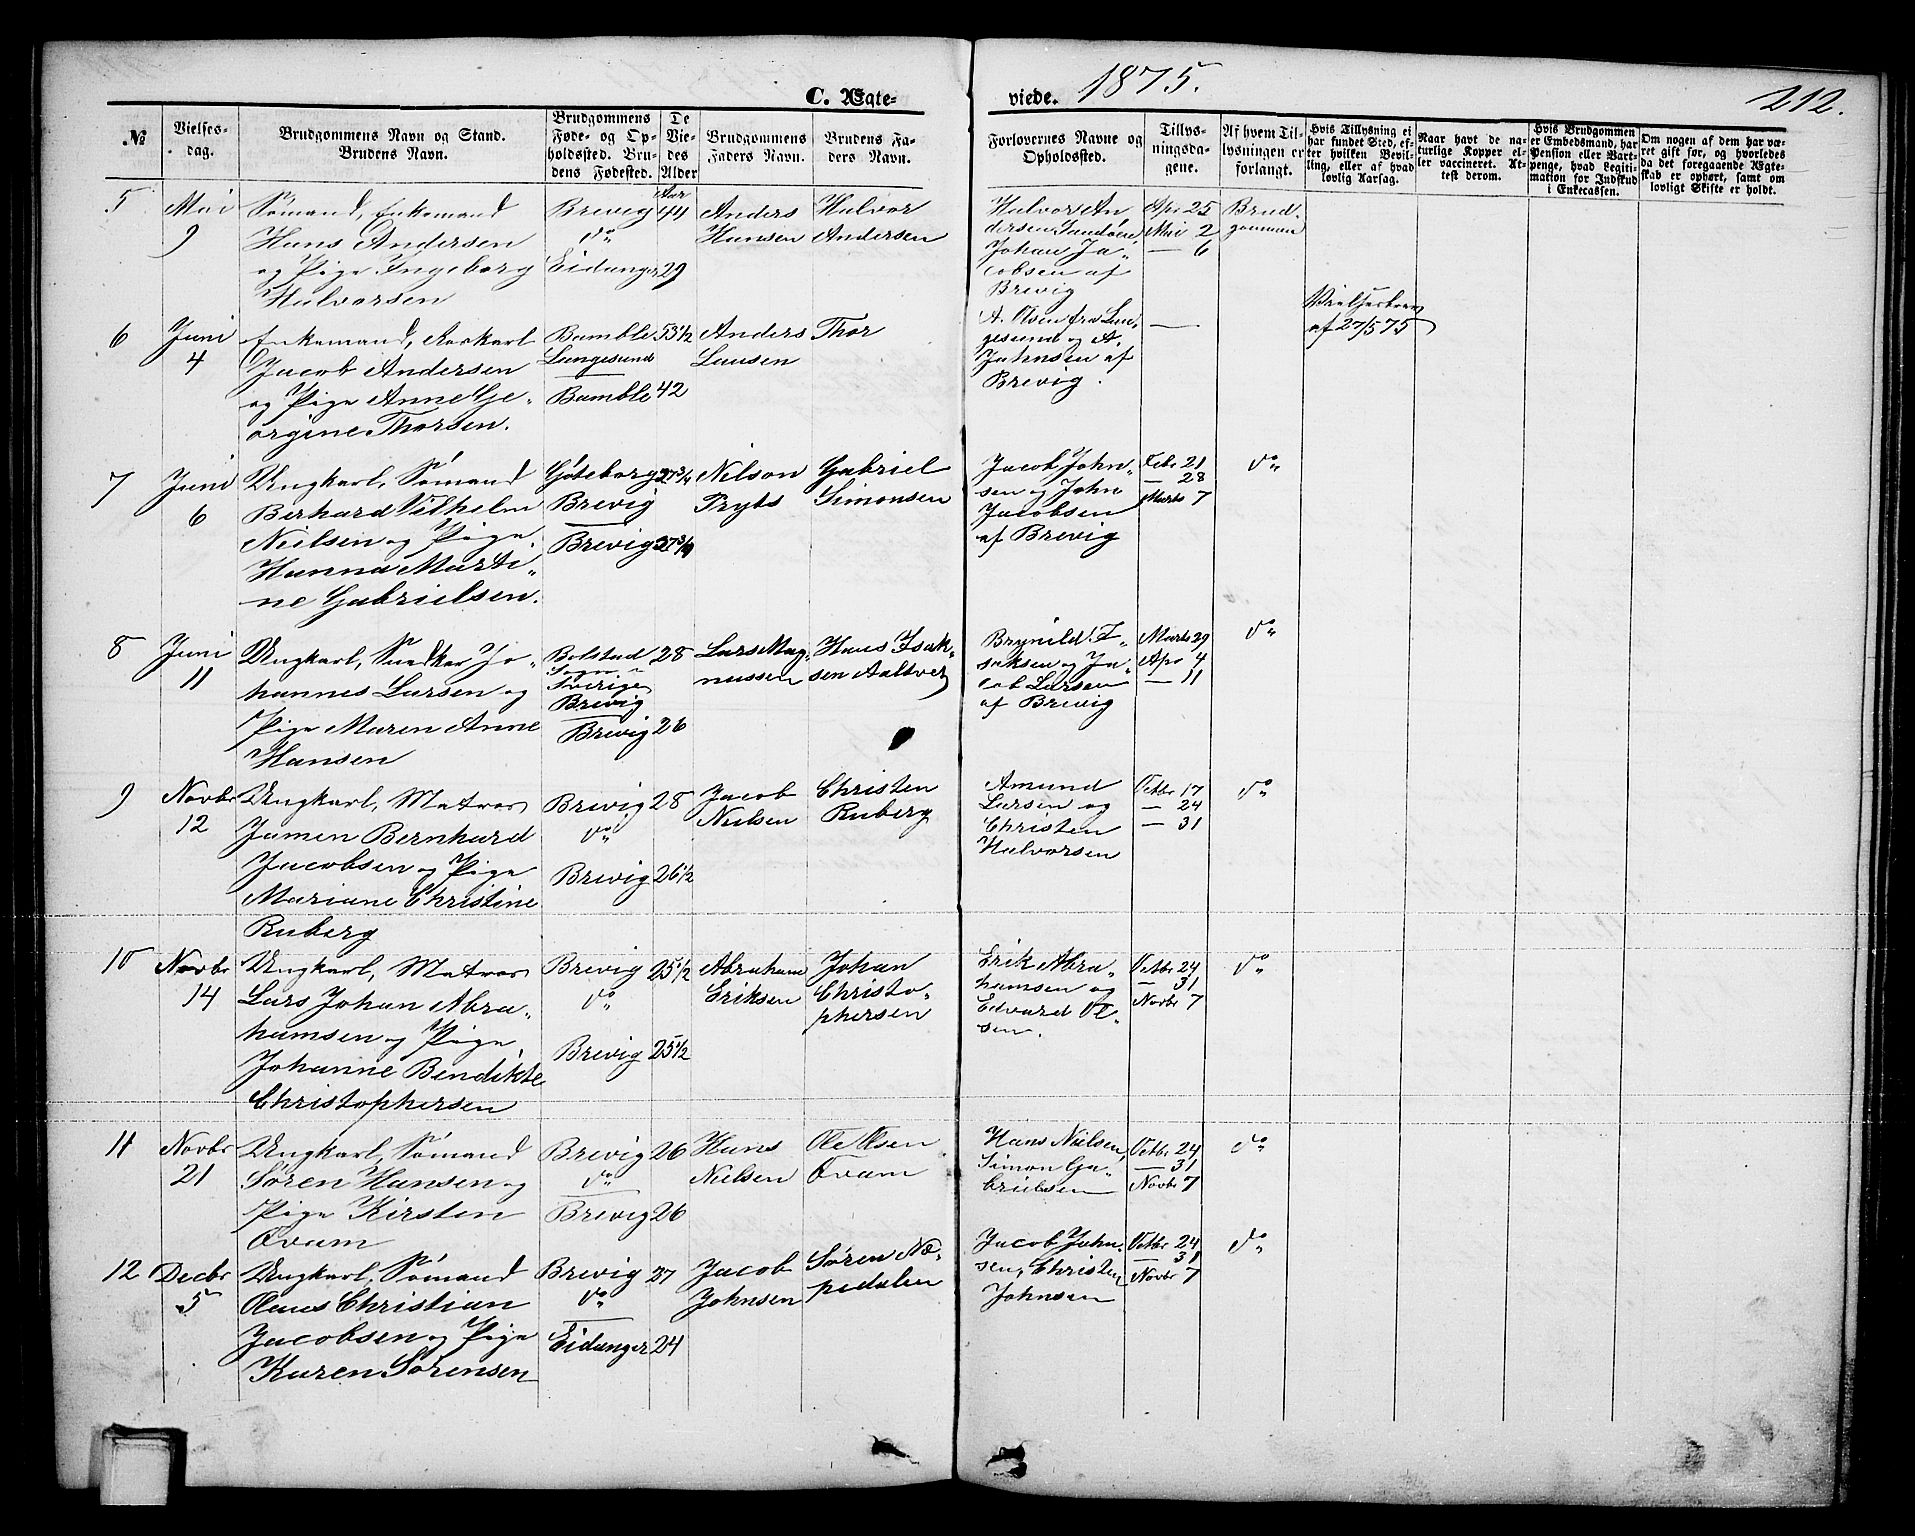 C. Ægte-
viede. 1875.
212.
№
Vielses-
dag.
Brudgommens Navn og Stand.
Brudens Navn.
Brudgommens
Føde- og Op-
holdssted. Bru-
dens Fødested.
De
Vie-
des
Alder
Brudgommens
Faders Navn.
Brudens Fa-
ders Navn.
Forlovernes Navne og
Opholdssted.
Tillys-
ningsda-
gene.
Af hvem Til-
lysningen er
forlangt.
Hvis Tillysning ei
har fundet Sted, ef-
ter hvilken Bevil-
ling, eller af hvad
lovlig Aarsag.
Naar havt de na-
turlige Kopper el-
ler vaccineret. At-
test derom.
Hvis Brudgommen
er Embedsmand, har
Pension eller Vart-
penge, hvad Legiti-
mation for Indskud
i Enkecassen.
Om nogen af dem har væ-
ret gift før, og hvorledes
da det foregaaende Ægte-
skab er ophørt, samt om
lovligt Skifte er holdt.
5
Mai
9
Sømand, Enkemand
Hans Andersen
og Pige Ingeborg
Halvorsen
Brevig
do
Eidanger
Aar
44
29
Anders
Hansen
Halvor
Andersen
Halvor An
dersen Sandøen
Johan Ja„
cobsen af
Brevig
Apr 25
Mai 2
— 6
Brud„
gommen
6
Juni
4
Enkemand,
Jacob Andersen
og Pige Anne Ge„
orgine Thorsen.
Bamble
Langesund
Bamble
53 1/2
42
Anders
Lausen
Thor
A. Olsen fra Lan„
gesund og A.
Johnsen af
Brevig.
—
af 27/5 75
7
Juni
6
Ungkarl, Sømand
Berhard Vilhelm
Nielsen og Pige
Hanna Marti„
ne Gabrielsen.
Göteborg
Brevig
Brevig
27 3/4
Nilson
Pryts
Gabriel
Simonsen
Jacob John„
sen og John
Jacobsen
af Brevig
Febr 21
— 28
Marts 7
do
8
Juni
11
Ungkarl, Snedker Jo„
hannes Larsen og
Pige Maren Anne
Hansen
Bolstad
Sogn
Sverige
Brevig
Brevig
28
26
Lars Mag„
nussen
Hans Isak„
sen
Brynild I„
saksen og Ja„
cob Larsen
af Brevig
Marts 29
Apr 4
— 11
do
9
Novbr
12
Ungkarl, Matros
Jamen Bernhard
Jacobsen og Pige
Mariane Christine
Ruberg
Brevig
do
Brevig
28
26 1/2
Jacob
Nielsen
Christen
Ruberg
Amund
Larsen og
Christen
Halvorsen
Octbr 17
— 24
— 31
do
10
Novbr
14
Ungkarl, Matros
Lars Johan Abra„
hamsen og Pige
Johanne Bendikte
Christophersen
Brevig
do
Brevig
25 1/2
25 1/2
Abraham
Eriksen
Johan
Christo„
phersen
Erik Abra„
hamsen og
Edvard Ol„
sen.
Octbr 24
— 31
Novbr 7
do
11
Novbr
21
Ungkarl, Sømand
Søren Hansen og
Pige Kirsten
Qvam
Brevig
do
Brevig
26
26
Hans
Nielsen
Ole Olsen
Qvam
Hans Nielsen,
Simon Ga„
brielsen
Octbr 24
— 31
Novbr 7
do
12
Decbr
5
Ungkarl, Sømand
Olaus Christian
Jacobsen og Pige
Karen Sørensen
Brevig
do
Eidanger
27
24
Jacob
Johnsen
Søren Næ„
pedalen
Jacob John„
sen, Christen
Johnsen
Octbr 24
— 31
Novbr 7
do